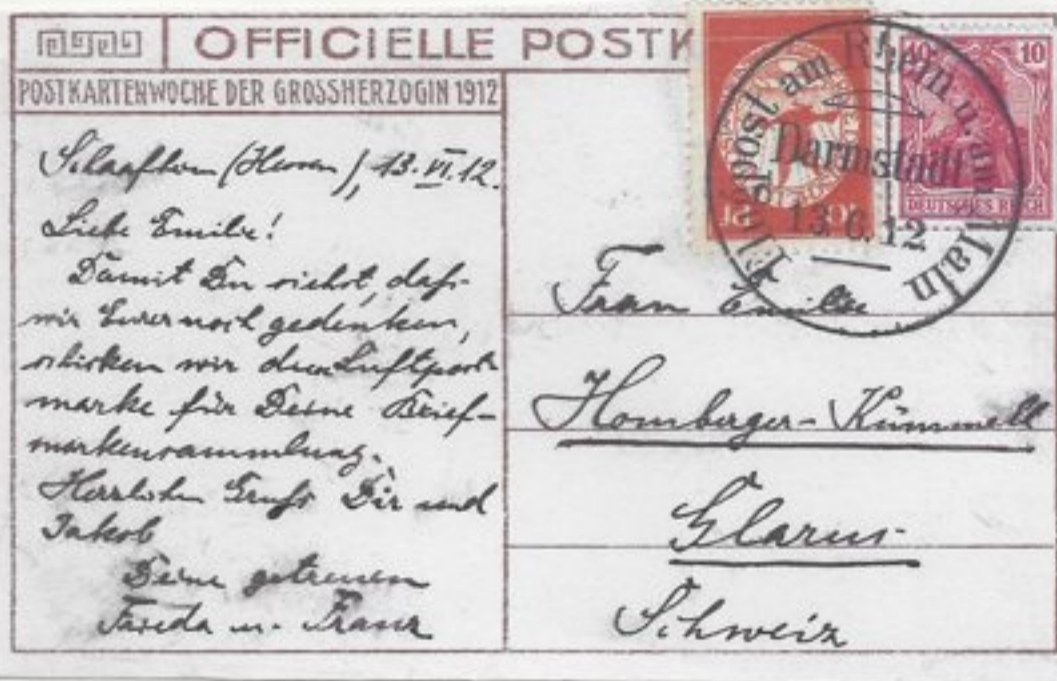 OFFICIELLE POSTK
POSTKARTENWOCHE DER GROSSHERZOGIN 1912
Schaafheim (Hessen), 13.VI.12.
Liebe Emilie!
Damit Du siehst, daß
wir Eurer noch gedenken,
schicken wir den Luftpost-
marke für Deine Brief-
markensammlung.
Herzlichen Gruß Dir und
Jakob
Deine getreuen
Frieda u. Franz
10 10
DEUTSCHES REICH
Flugpost am Rhein u. am Main
Darmstadt
13.6.12
Frau Emilie
Homberger-Kümmell
Glarus
Schweiz